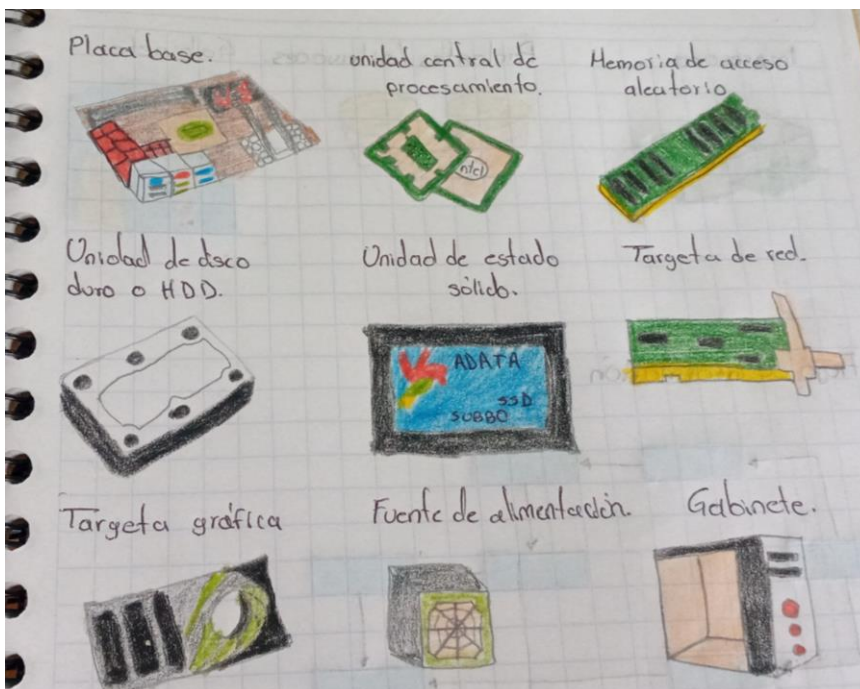 Placa base.
unidad central de
procesamiento.
Memoria de acceso
aleatorio
ntel
Unidad de disco
duro o HDD.
Unidad de estado
sólido.
Targeta de red.
ADATA
SSD
SU880
Targeta gráfica
Fuente de alimentación.
Gabinete.